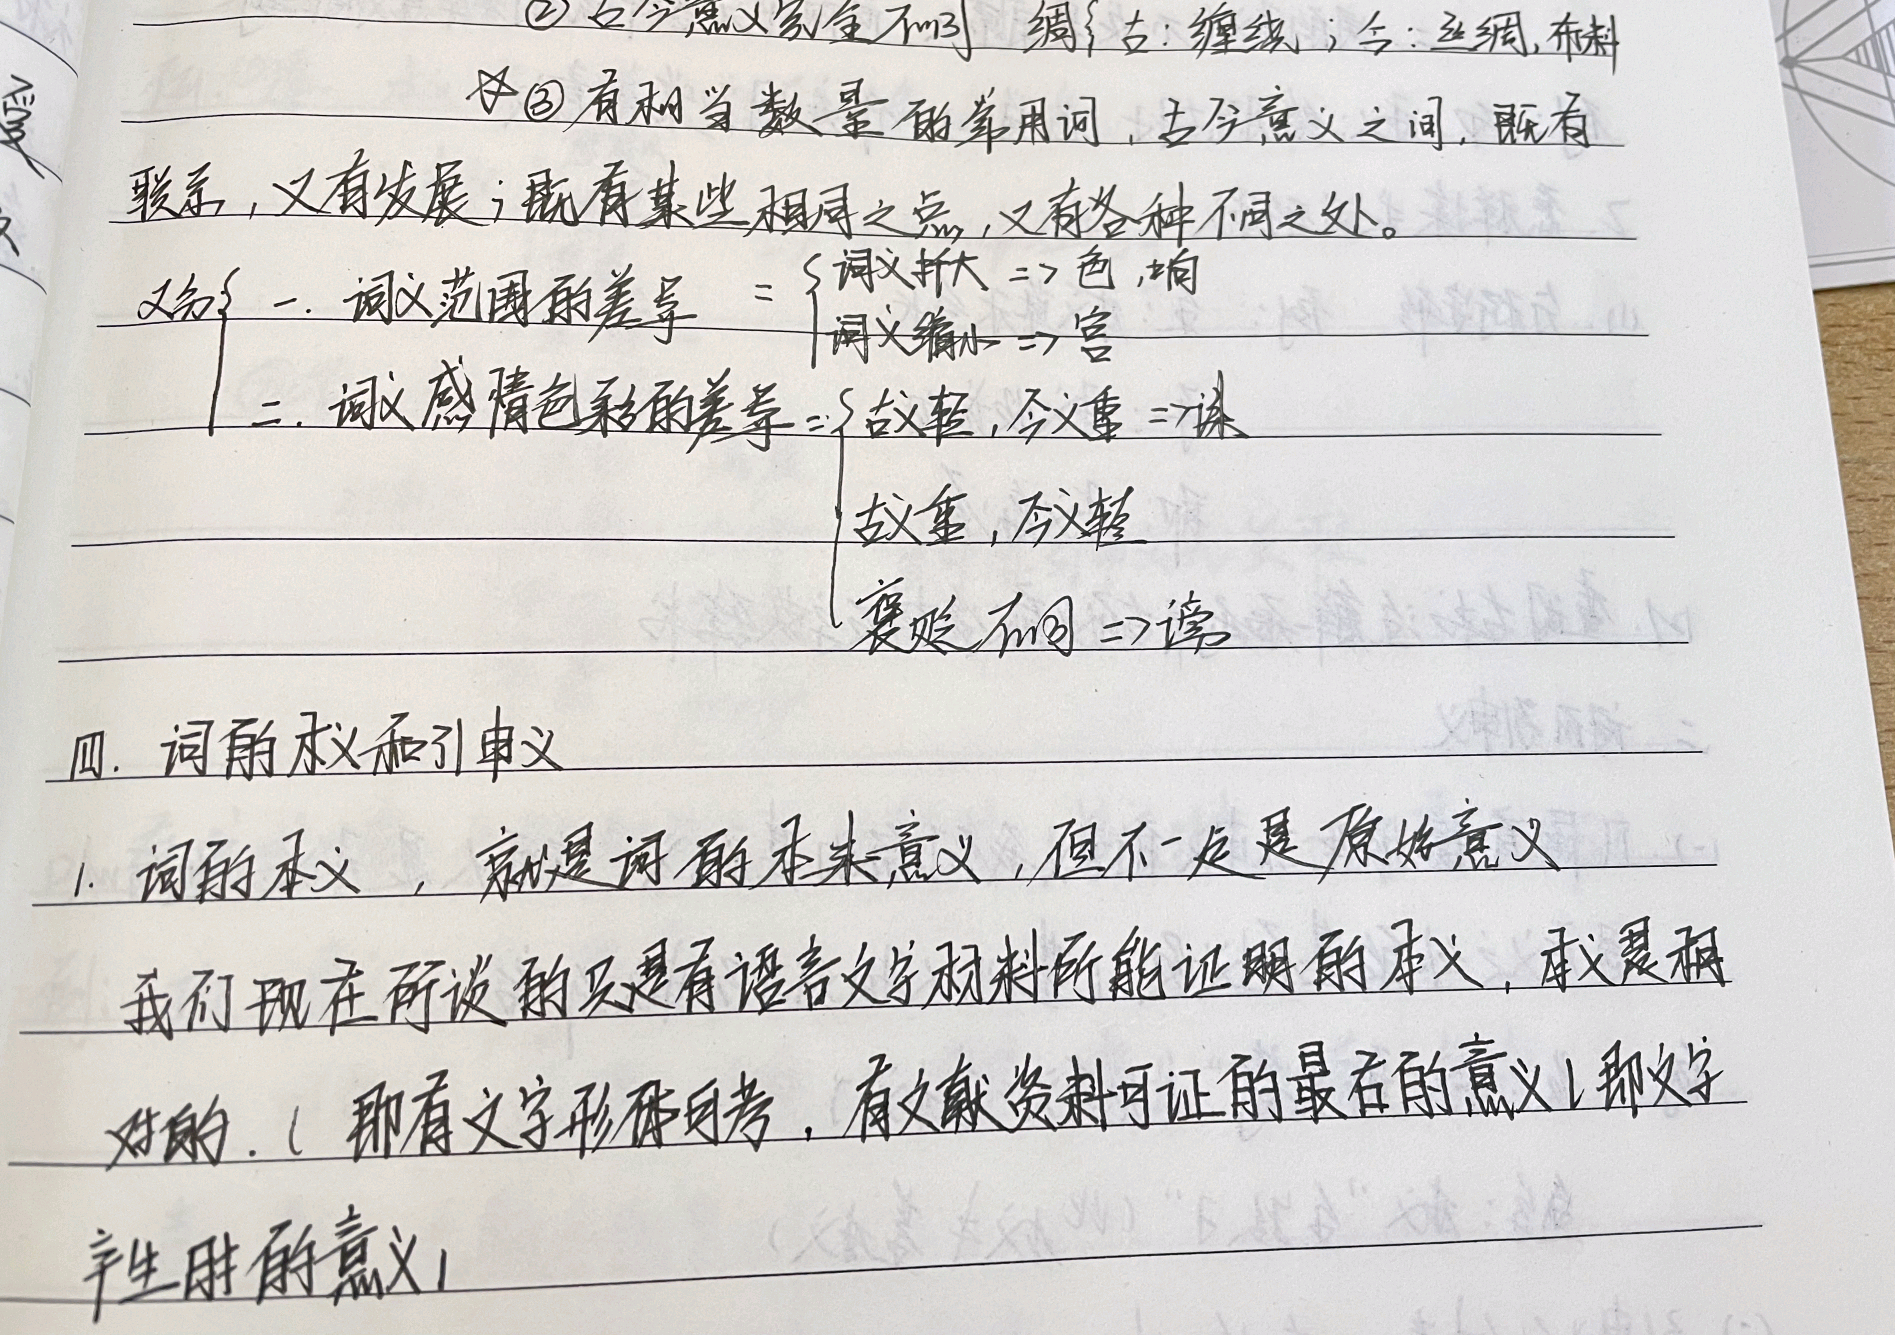 ② 古今意义完全不同 绸{古：缠绕；今：丝绸，布料
☆③ 有相当数量的常用词，古今意义之间，既有
联系，又有发展；既有某些相同之点，又有各种不同之处。
又分{ 一. 词义范围的差异 = { 词义扩大 => 色，响
词义缩小 => 宫
二. 词义感情色彩的差异 = { 古义轻，今义重 => 诛
古义重，今义轻
褒贬不同 => 谤
四. 词的本义和引申义
1. 词的本义，就是词的本来意义，但不一定是原始意义
我们现在所谈的只是有语言文字材料所能证明的本义，本义是相
对的.（即有文字形体可考，有文献资料可证的最古的意义（即文字
产生时的意义）